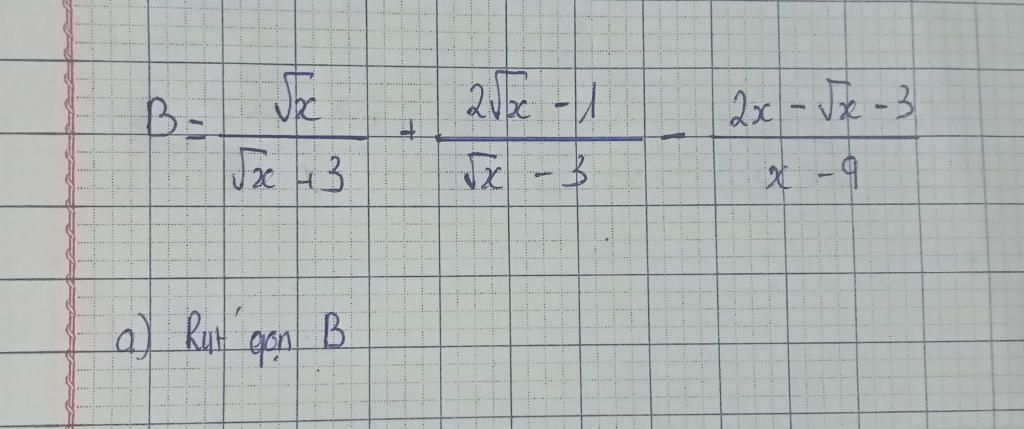 B = √x / (√x + 3) + (2√x - 1) / (√x - 3) - (2x - √x - 3) / (x - 9)
a) Rút gọn B